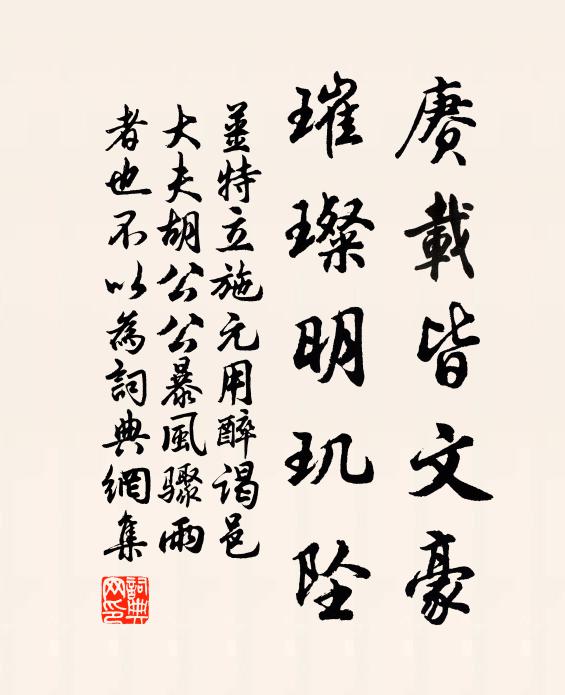 賡載皆文豪
璀璨明玑墜
薑特立施元用醉谒邑
大夫胡公公暴風驟雨
者也不以為詞典網集
詞典
网印